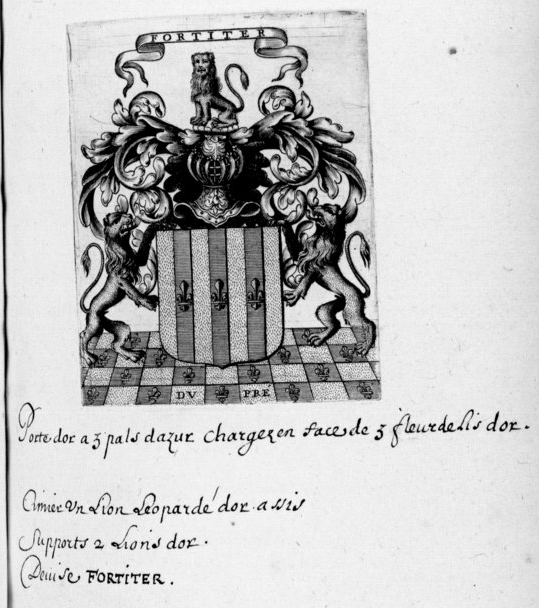 FORTITER
DV PRÉ
Porte dor a 3 pals dazur chargez en face de 3 fleurdelis dor.
Cimier Vn Lion Leopardé dor assis
Supports 2 Lions dor.
Deuise FORTITER.